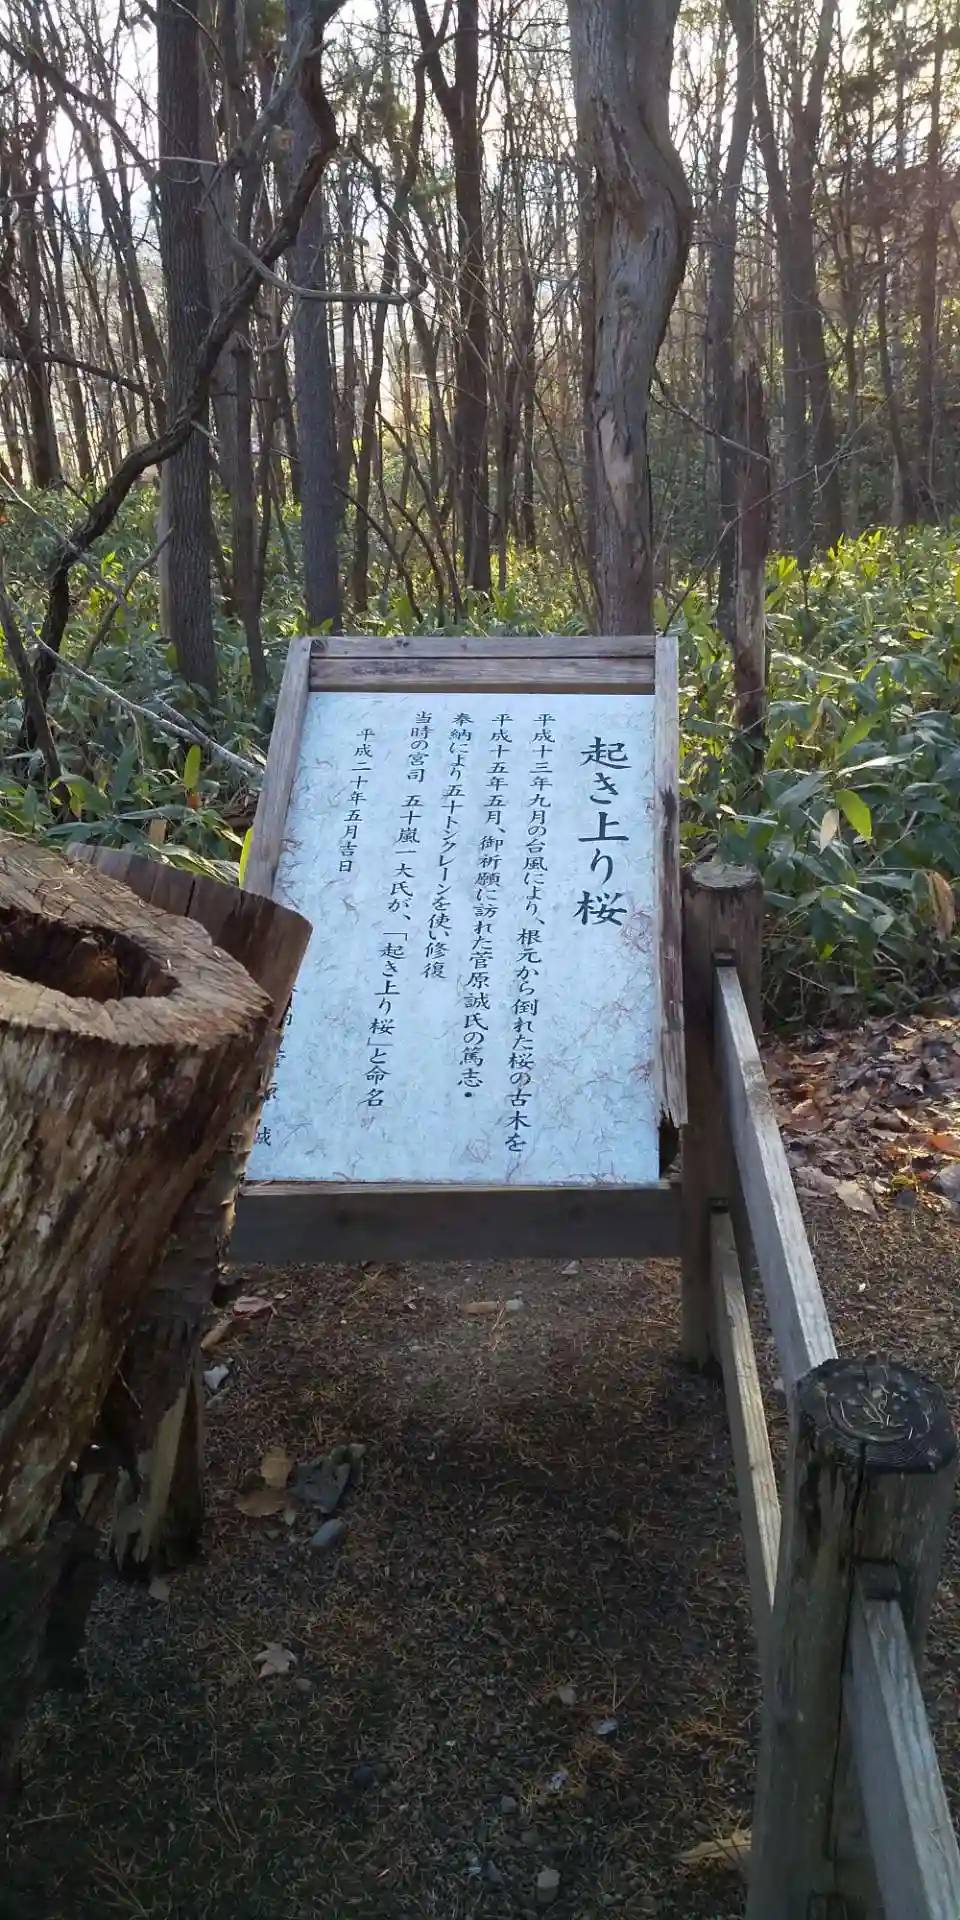 起き上り桜
平成十三年九月の台風により、根元から倒れた桜の古木を
平成十五年五月、御祈願に訪れた菅原誠氏の篤志・
奉納により五十トンクレーンを使い修復
当時の宮司 五十嵐一大氏が、「起き上り桜」と命名
平成二十年五月吉日
原 誠